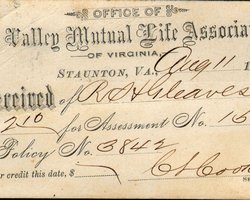 OFFICE OF
Valley Mutual Life Associa
OF VIRGINIA,
STAUNTON, VA., Aug 11 1
eceived of R H Gleaves
2 10 for Assessment No. 15
Policy No. 3842
r credit this date, $